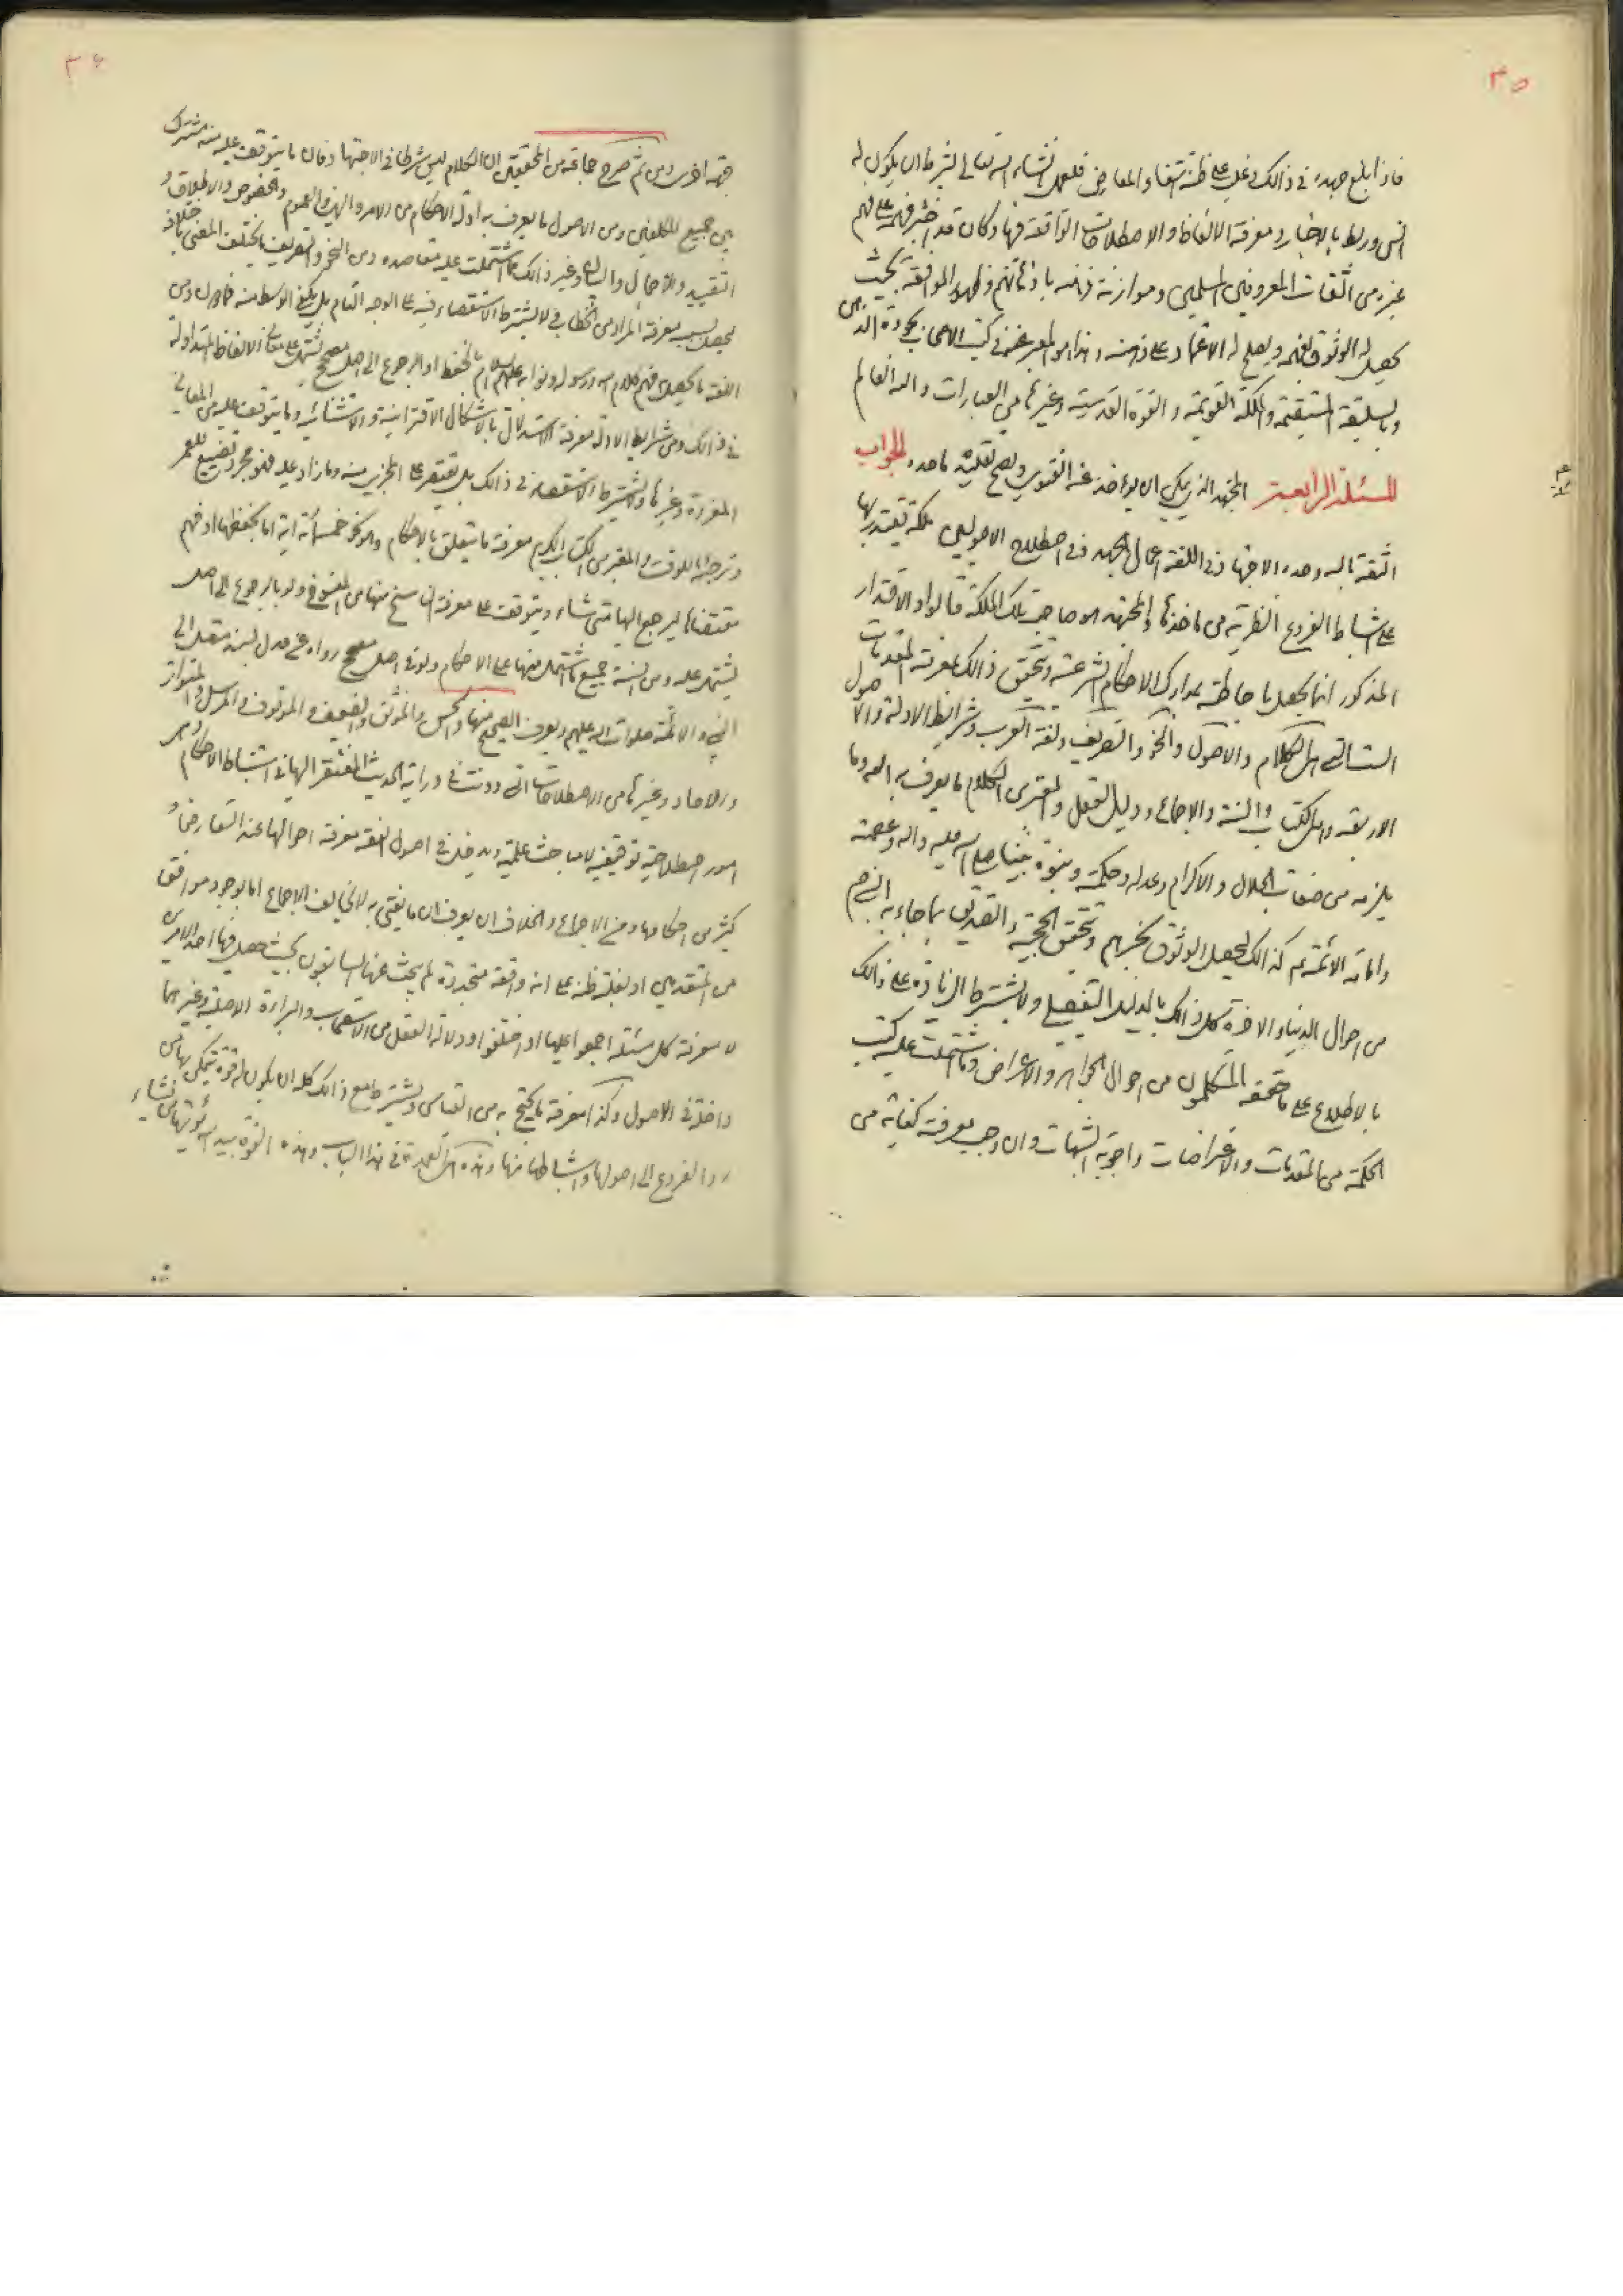 ٣٥
فاذا بلغ جهده في ذالك وغلب على ظنه انتفاء المعارض فلعمل انشاء الله تعالى بشرط ان يكون له
انس وربط بالاخبار ومعرفة الالفاظ والاصطلاحات الواقعة فيها وكان قد اختبر فهمه على فهم
غيره من الثقات المعروفين المسلمين وموازنة فهمه باذهانهم وظهور الموافقة بحيث
يحصل له الوثوق بفهمه ويصلح له الاعتماد على ذهنه وهذا هو المعبر عنه في كتب الاصحاب بجودة الذهن
وبالسليقة المستقيمة والملكة القويمة والقوة القدسية وغيرها من العبارات والله العالم
المسئلة الرابعة المجتهد الذي يمكن ان يؤخذ عنه الفتوى ويصح تقليده ما حده الجواب
الثقة بالله وحده الاجتهاد في اللغة اعمال الجهد وفي اصطلاح الاصوليين ملكة يقتدر بها
على استنباط الفروع النظرية من ماخذها والمجتهد هو صاحب تلك الملكة قالوا والاقتدار
المذكور انما يحصل باحاطته بمدارك الاحكام الشرعية ويتحقق ذالك بمعرفة المقدمات
الست التي هي الكلام والاصول والنحو والتصريف ولغة العرب وشرايط الادلة والاصول
الاربعة وهي الكتاب والسنة والاجماع ودليل العقل والمعتبر من الكلام ما يعرف به الله وما
يلزمه من صفات الجلال والاكرام وعدله وحكمته ونبوة نبينا صلى الله عليه واله وعصمته
وامامة الائمة ع كذالك ليحصل الوثوق بخبرهم وتتحقق الحجية والتصديق بما جاء به النبي ص
من احوال الدنيا والاخرة كل ذالك بالدليل التفصيلي ولا يشترط الزيادة على ذالك
بالاطلاع على ما حققه المتكلمون من احوال الجواهر والاعراض وما اشتملت عليه كتب
الحكمة من المقدمات والاعتراضات واجوبة الشبهات وان وجب معرفته كفاية من
٣٦
جهة اخرى ومن ثم صرح جماعة من المحققين ان الكلام ليس شرطا في الاجتهاد فان ما يتوقف عليه منه مشترك
بين جميع المكلفين ومن الاصول ما يعرف به ادلة الاحكام من الامر والنهي والعموم والخصوص والاطلاق و
التقييد والاجمال والبيان وغير ذالك مما اشتملت عليه مقاصده ومن النحو والتصريف ما يختلف المعنى باختلافه
ليحصل بسببه معرفة المراد من الخطاب ولا يشترط الاستقصاء فيه على الوجه التام بل يكفي الوسط منه فما دون ومن
اللغة ما يحصل به فهم كلام الله ورسوله ونوابه عليهم السلام بالحفظ او الرجوع الى اصل مصحح يشتمل على معاني الالفاظ المتداولة
في ذالك ومن شرايط الادلة معرفة الاستدلال بالاشكال الاقترانية والاستثنائية وما يتوقف عليه من المعاني
المفردة وغيرها ولا يشترط الاستقصاء في ذالك بل يقتصر على المجزي منه وما زاد عليه فهو مجرد تضييع للعمر
وترجية للوقت والمعتبر من الكتاب الكريم معرفة ما يتعلق بالاحكام وهو نحو خمسمائة اية اما بحفظها او فهم
مقتضاها ليرجع اليها متى شاء ويتوقف على معرفة الناسخ منها من المنسوخ ولو بالرجوع الى اصل
يشتمل عليه ومن السنة جميع ما اشتمل منها على الاحكام ولو في اصل مصحح رواه عن عدل بسند متصل الى
النبي والائمة صلوات الله عليهم ويعرف الصحيح منها والحسن والموثق والضعيف والموقوف والمرسل والمتواتر
والاحاد وغيرها من الاصطلاحات التي دونت في دراية الحديث المفتقر اليها في استنباط الاحكام وهي
امور اصطلاحية توقيفية لا مباحث علمية ويدخل في اصول الفقه معرفة احوالها عند التعارض و
كثير من احكامها ومن الاجماع والخلاف ان يعرف ان ما يفتي به لا يخالف الاجماع اما بوجود موافق
من المتقدمين او يغلب ظنه على انه واقعة متجددة لم يبحث عنها السابقون بحيث حصل فيها احد الامرين
لا معرفة كل مسئلة اجمعوا عليها او اختلفوا ودلالة العقل من الاستصحاب والبراءة الاصلية وغيرهما
داخلة في الاصول وكذا معرفة ما يحتج به من القياس ويشترط مع ذالك كله ان يكون له قوة يتمكن بها من
رد الفروع الى اصولها واستنباطها منها وهذه هي العمدة في هذا الباب وهذه القوة بيد الله يؤتيها من يشاء